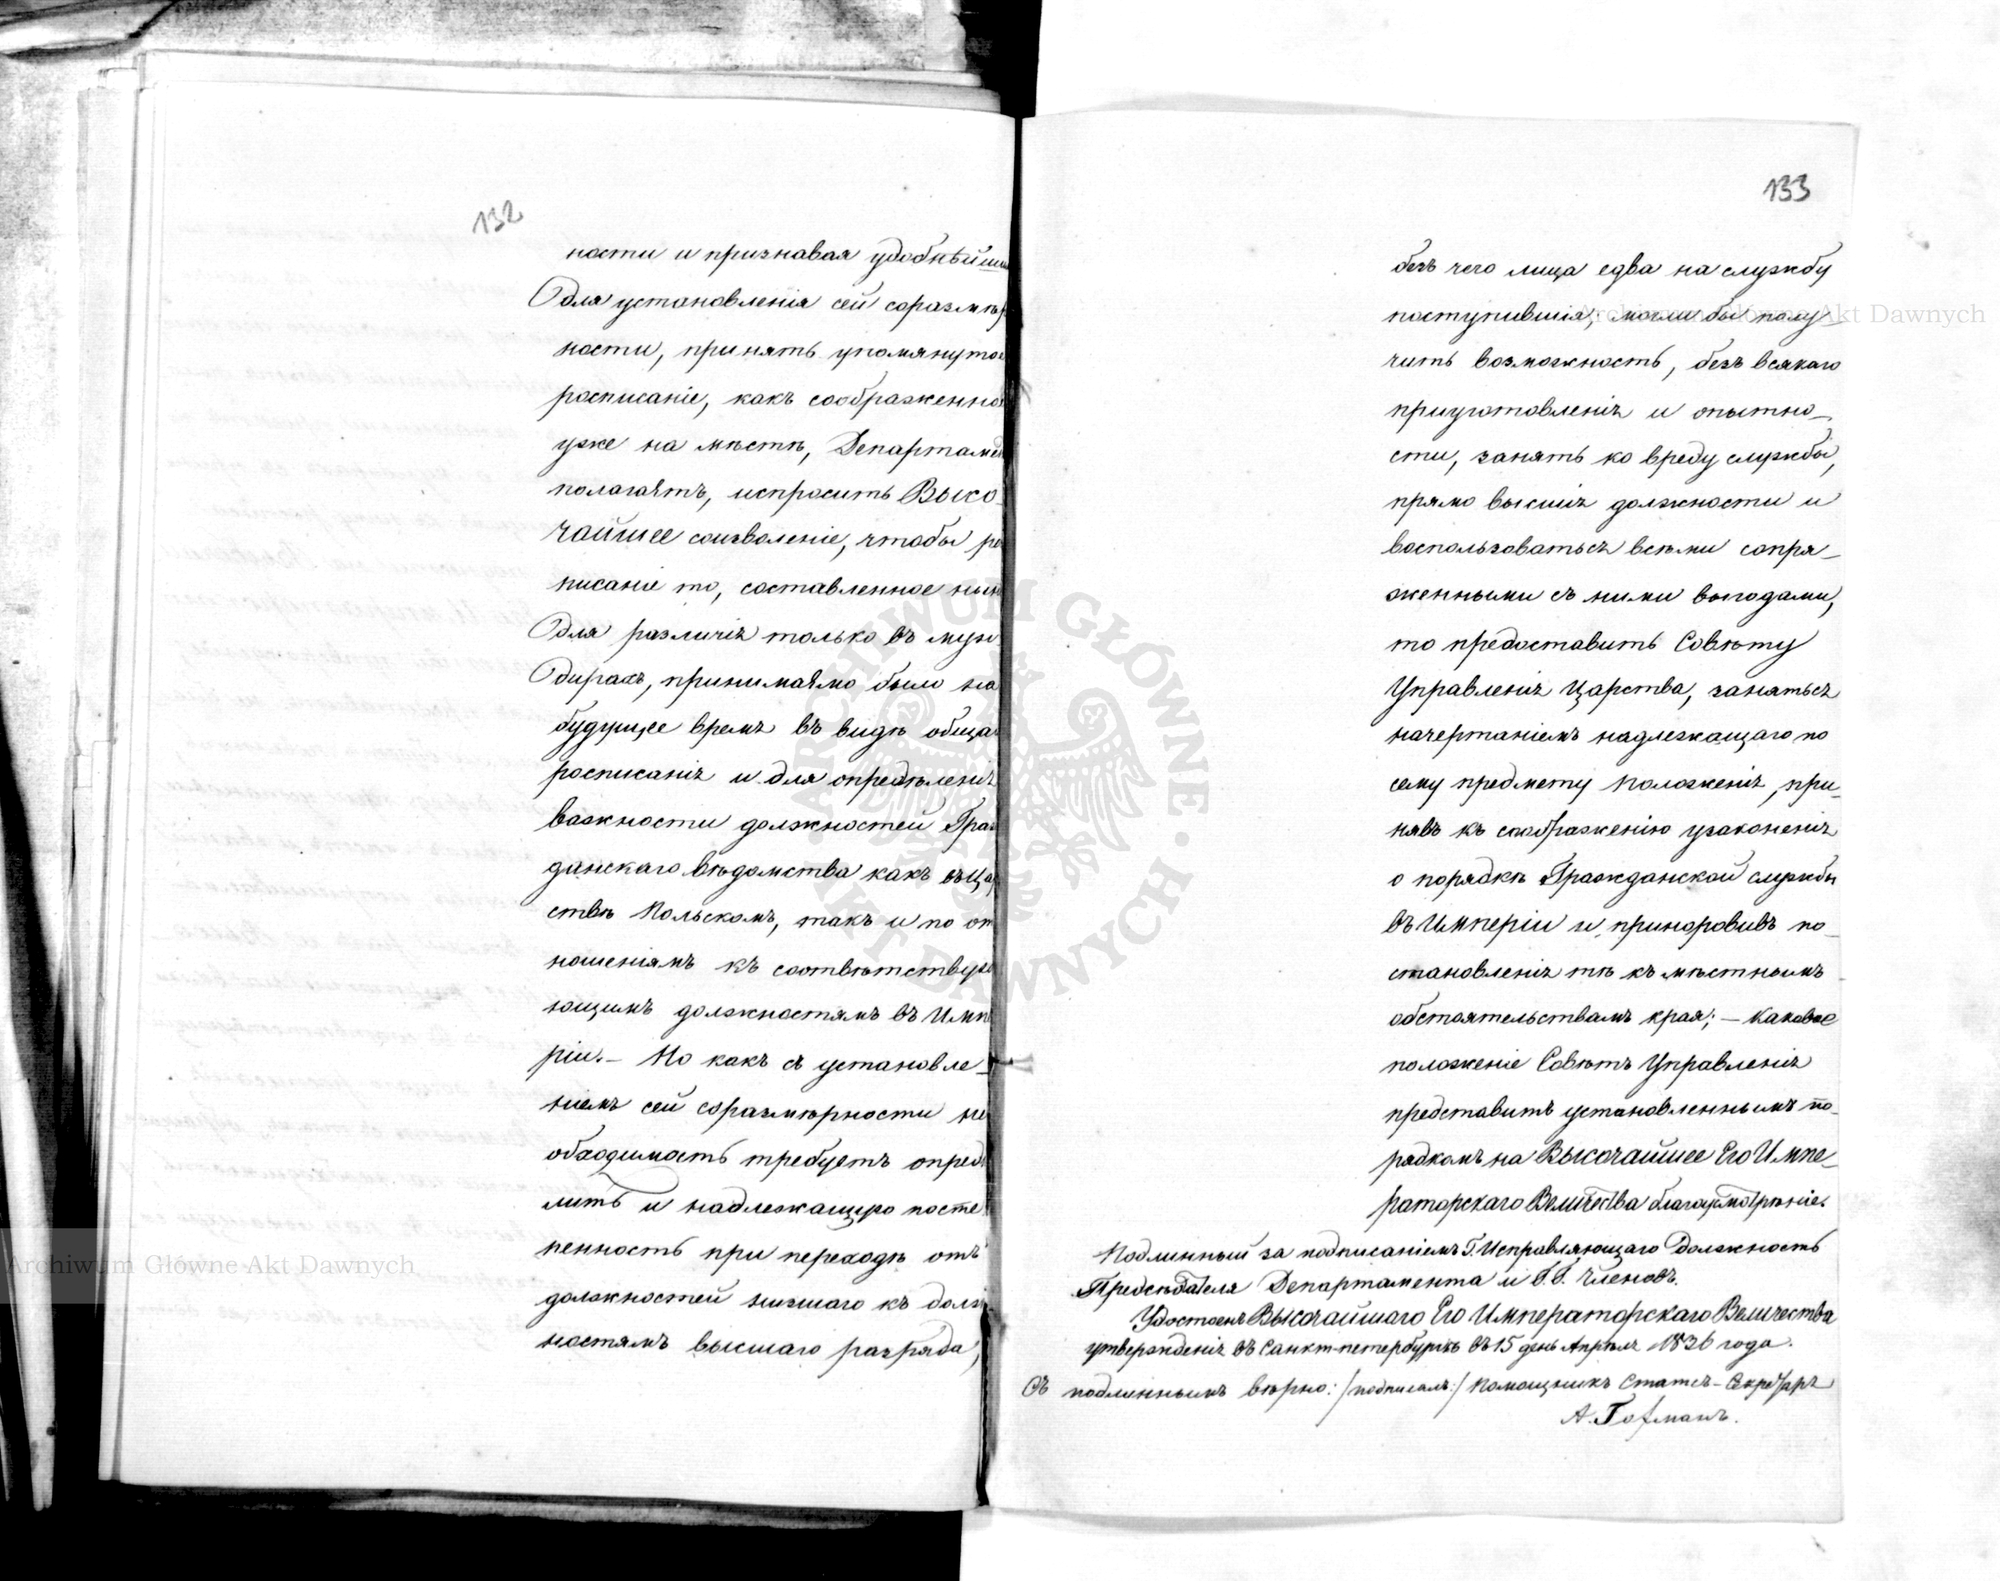 132
ности и признавая удобнѣйши
для установленія сей соразмѣр
ности, принять упомянутое
росписаніе, какъ соображенное
уже на мѣстѣ, Департамен
полагаетъ, испросить Высо-
чайшее соизволеніе, чтобы ро
писаніе то, составленное нын
для различія только въ мун
дирахъ, принимаемо было на
будущее время въ видѣ общаго
росписанія и для опредѣленія
важности должностей Граж
данскаго вѣдомства какъ въ Цар
ствѣ Польскомъ, такъ и по от
ношеніямъ къ соотвѣтству
ющимъ должностямъ въ Импе
ріи. — Но какъ съ установле-
ніемъ сей соразмѣрности не
обходимость требуетъ опредѣ
лить и надлежащую посте
пенность при переходѣ отъ
должностей низшаго къ долж
ностямъ высшаго разряда,
133
безъ чего лица едва на службу
поступившія, могли бы полу-
чить возможность, безъ всякаго
приуготовленія и опытно-
сти, занять ко вреду службы,
прямо высшія должности и
воспользоваться всѣми сопря-
женными съ ними выгодами,
то предоставить Совѣту
Управленія Царства, заняться
начертаніемъ надлежащаго по
сему предмету положенія, при-
нявъ къ соображенію узаконенія
о порядкѣ Гражданской службы
въ Имперіи и приноровивъ по-
становленія тѣ къ мѣстнымъ
обстоятельствамъ края; — каковое
положеніе Совѣтъ Управленія
представитъ установленнымъ по-
рядкомъ на Высочайшее Его Импе-
раторскаго Величества благоусмотрѣніе.
Подлинный за подписаніемъ Г. Исправляющаго Должность
Предсѣдателя Департамента и Г.Г. Членовъ.
Удостоенъ Высочайшаго Его Императорскаго Величества
утвержденія въ Санкт-петербургѣ въ 15 день Апрѣля 1836 года.
Съ подлиннымъ вѣрно: /подписалъ:/ Помощникъ Статсъ-Секретаря
А. Гофманъ.
Archiwum Główne Akt Dawnych
Archiwum Główne Akt Dawnych
ARCHIWUM GŁÓWNE · AKT DAWNYCH ·